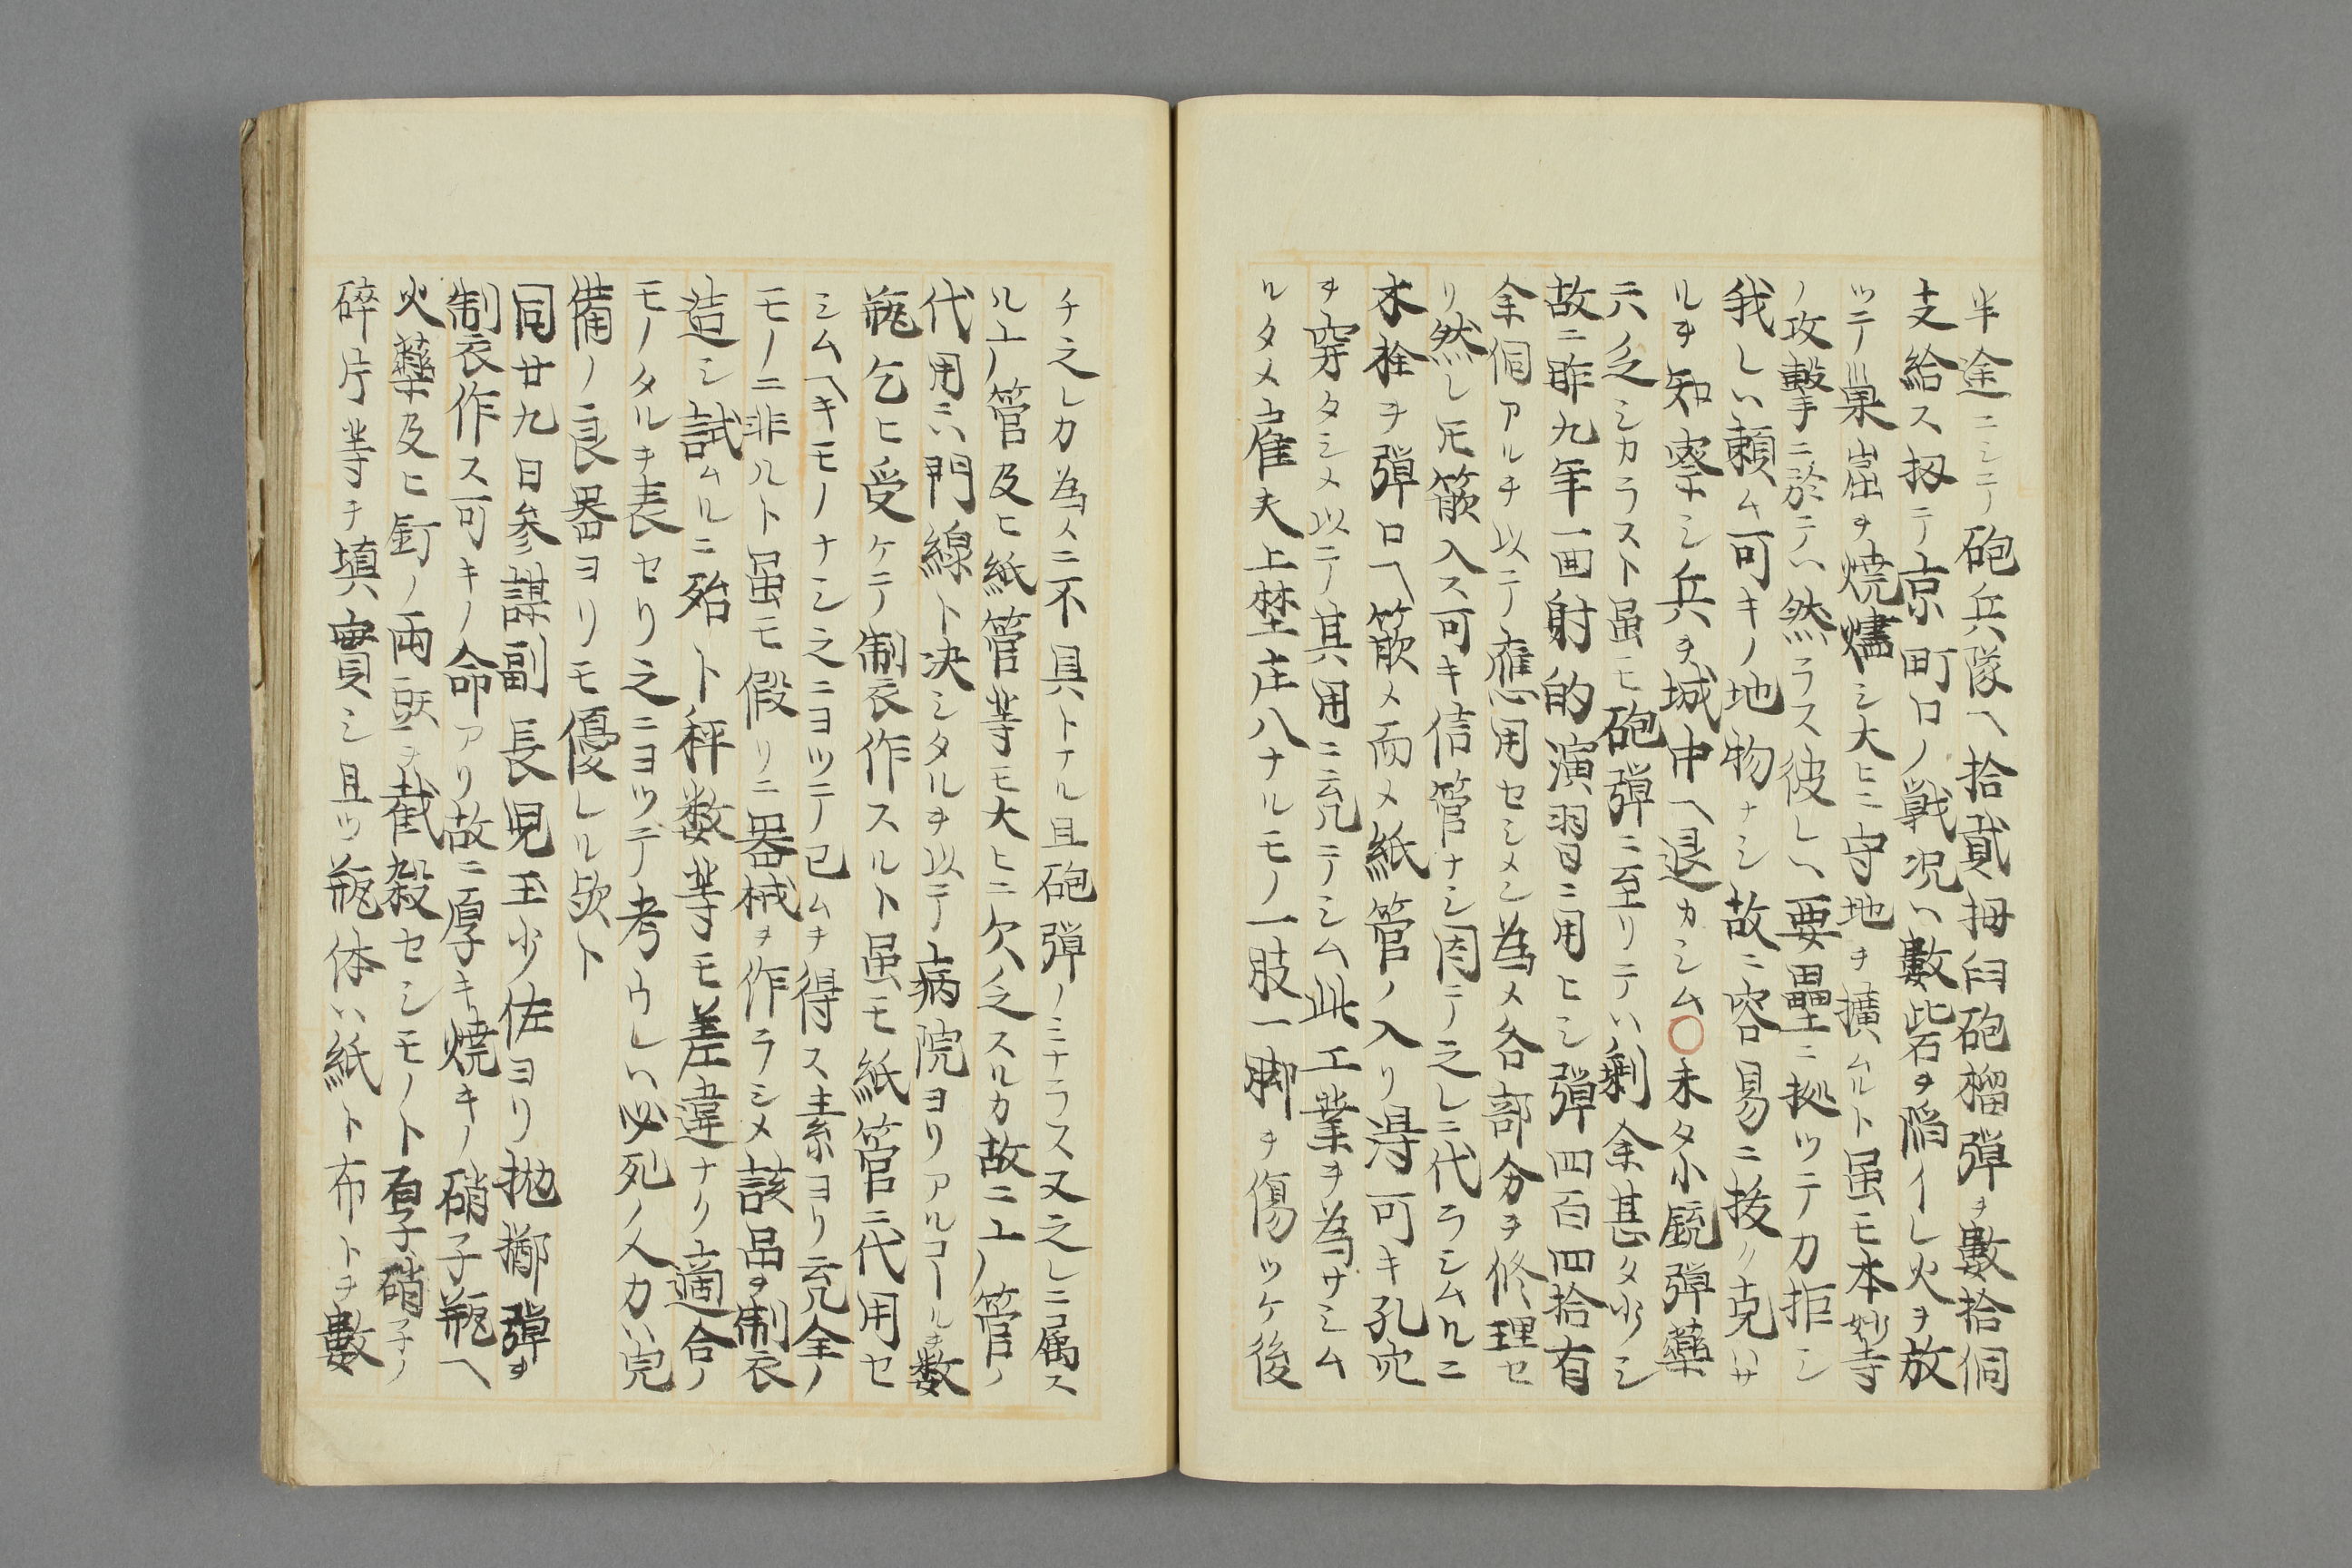 半途ニシテ砲兵隊ヘ拾貳拇臼砲榴弾ヲ數拾個
支給ス扨テ京町口ノ戦况ハ數砦ヲ陷イレ火ヲ放
ツテ巣崫ヲ焼燼シ大ヒニ守地ヲ擴ムルト虽モ本妙寺
ノ攻撃ニ於テハ然ラス彼レハ要壘ニ拠ツテ力拒シ
我レハ頼ム可キノ地物ナシ故ニ容易ニ抜ク克ハサ
ルヲ知察シ兵ヲ城中ヘ退カシム〇未タ小銃弾藥
ニハ乏シカラスト虽モ砲弾ニ至リテハ剰余甚タ少シ
故ニ昨九年一画射的演習ニ用ヒシ弾四百四拾有
余個アルヲ以テ應用セシメン為メ各部分ヲ修理セ
リ然レ𪜈篏入ス可キ信管ナシ因テ之レニ代ラシムルニ
木栓ヲ弾口ヘ篏メ而メ紙管ノ入リ得可キ孔穴
ヲ穿タシメ以テ其用ニ充テシム此工業ヲ為サシム
ルタメ雇夫上埜庄八ナルモノ一肢一脚ヲ傷ツケ後
チ之レカ為メニ不具トナル且砲弾ノミナラス又之レニ属ス
ル上管及ヒ紙管等モ大ヒニ欠乏スルカ故ニ上管ノ
代用ニハ門線ト决シタルヲ以テ病院ヨリアルコールヲ数
瓶乞ヒ受ケテ制衣作スルト虽モ紙管ニ代用セ
シムヘキモノナシ之ニヨツテ已ムヲ得ス素ヨリ充全ノ
モノニ非ルト虽モ假リニ器械ヲ作ラシメ該品ヲ制衣
造シ試ムルニ殆ト秤数等モ差違ナク適合ノ
モノタルヲ表セリ之ニヨツテ考ウレハ必死ノ人力ハ完
備ノ良器ヨリモ優レル欤ト
同廿九日参謀副長児玉少佐ヨリ抛擲弾ヲ
制衣作ス可キノ命アリ故ニ厚キ焼キノ硝子瓶ヘ
火藥及ヒ釘ノ両頭ヲ截殺セシモノト硝子ノ
碎片等ヲ填實シ且ツ瓶体ハ紙ト布トヲ數